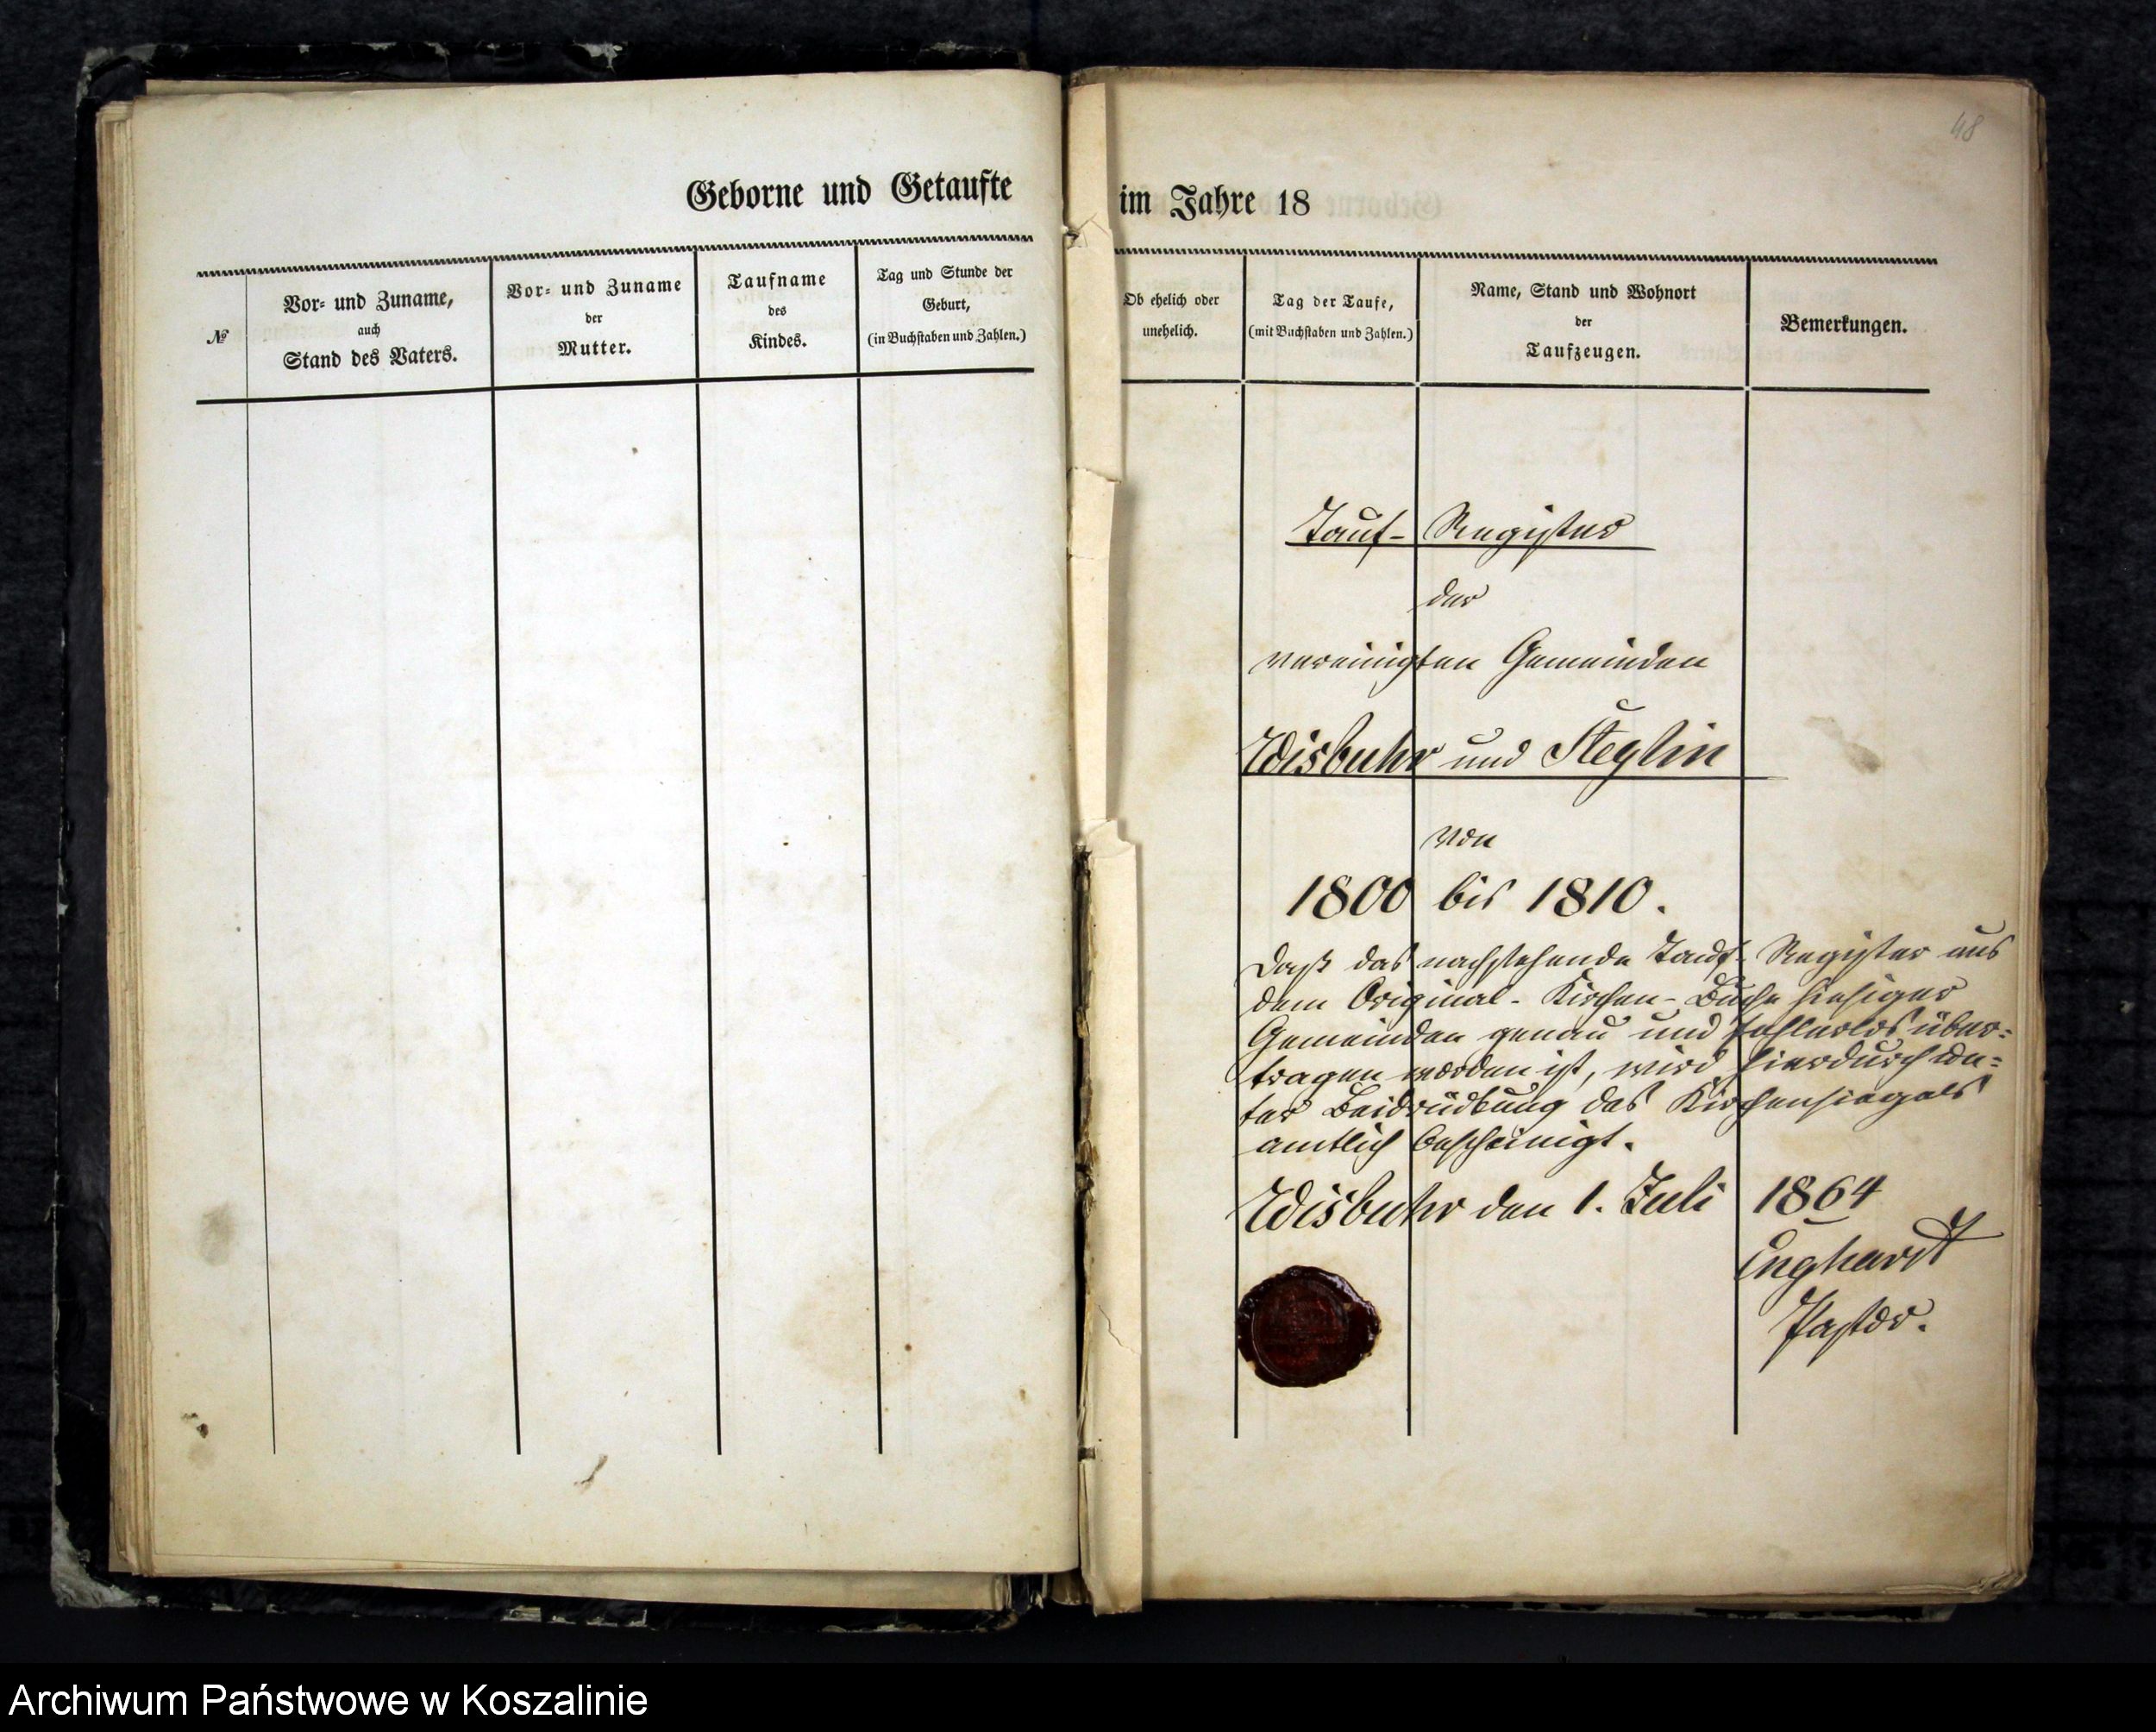 48
Geborne und Getaufte im Jahre 18
№
Vor- und Zuname,
auch
Stand des Vaters.
Vor- und Zuname
der
Mutter.
Taufname
des
Kindes.
Tag und Stunde der
Geburt,
(in Buchstaben und Zahlen.)
Ob ehelich oder
unehelich.
Tag der Taufe,
(mit Buchstaben und Zahlen.)
Name, Stand und Wohnort
der
Taufzeugen.
Bemerkungen.
Tauf-Register
der
vereinigten Gemeinden
Wisbuhr und Steglin
von
1800 bis 1810.
Daß das nachstehende Tauf-Register aus
dem Original-Kirchen-Buche hiesiger
Gemeinden genau und fehlerlos über=
tragen worden ist, wird hierdurch un=
ter Beidrückung des Kirchensiegels
amtlich bescheinigt.
Wisbuhr den 1. Juli 1864
Enghardt
Pastor.
Archiwum Państwowe w Koszalinie